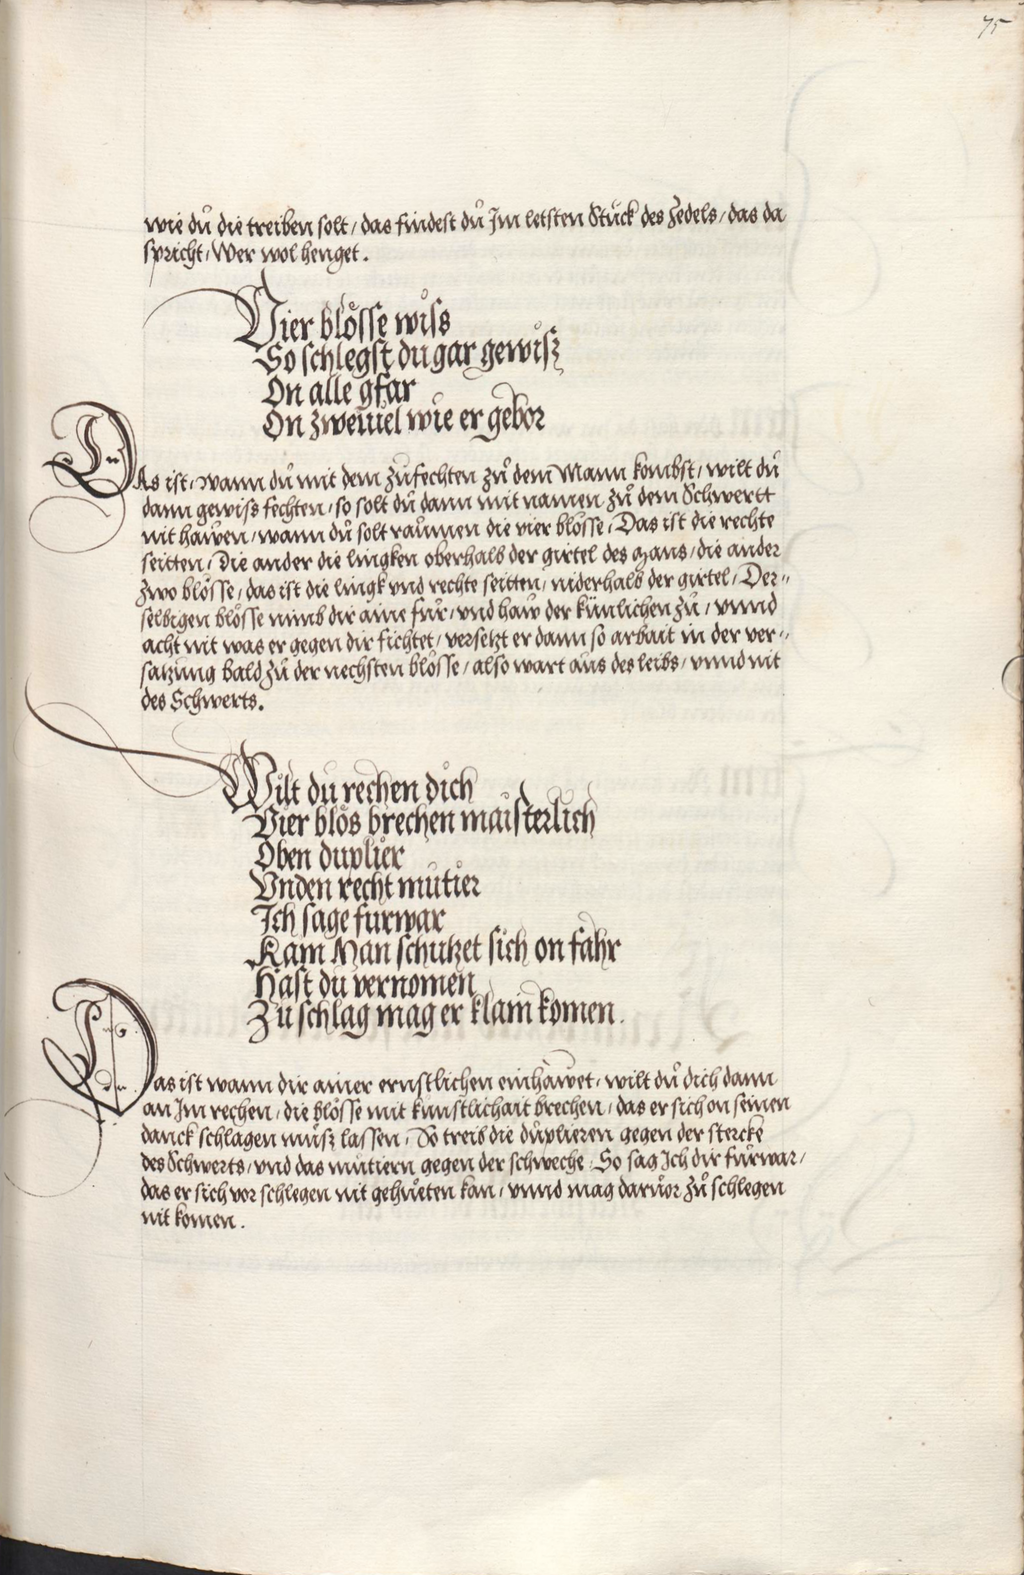 75
wie dů die treiben solt / das findest dů Im letsten Stůck des Zedels / das da
spricht / Wer wol henget.
Vier blösse wiss
So schlegst du gar gewisz
On alle gfar
On zweiuel wie er gebor
DAs ist / wann dů mit dem zůfechten zů dem Mann kombst / wilt dů
dann gewiss fechten / so solt dů dann mit namen zů dem Schwertt
nit hawen / wann dů solt raumen die vier blösse / Das ist die rechte
seitten / Die ander die lingken oberhalb der girtel des mans / die ander
zwo blösse / das ist die lingk vnd rechte seitten / niderhalb der girtel / Der-
selbigen blösse nimb dir aine fůr / vnd haw der kůnlichen zů / vnnd
acht nit was er gegen dir fichtet / versetzt er dann so arbait in der ver-
satzung bald zů der nechsten blösse / also wart aus des leibs / vnnd nit
des Schwerts.
Wilt du rechen dich
Vier blös brechen maisterlich
Oben duplier
Vnden recht mutier
Ich sage furwar
Kam Man schutzet sich on fahr
Hast du vernomen
Zu schlag mag er klain komen.
Das ist wann dir ainer ernstlichen einhawet / wilt dů dich dann
an Im rechen / die blösse mit kunstlichait brechen / das er sich on seinen
danck schlagen můsz lassen / So treib die důplieren gegen der stercke
des Schwerts / vnd das mutiern gegen der schweche / So sag Ich dir fůrwar /
das er sich vor schlegen nit gehueten kan / vnnd mag daruor zů schlegen
nit komen.